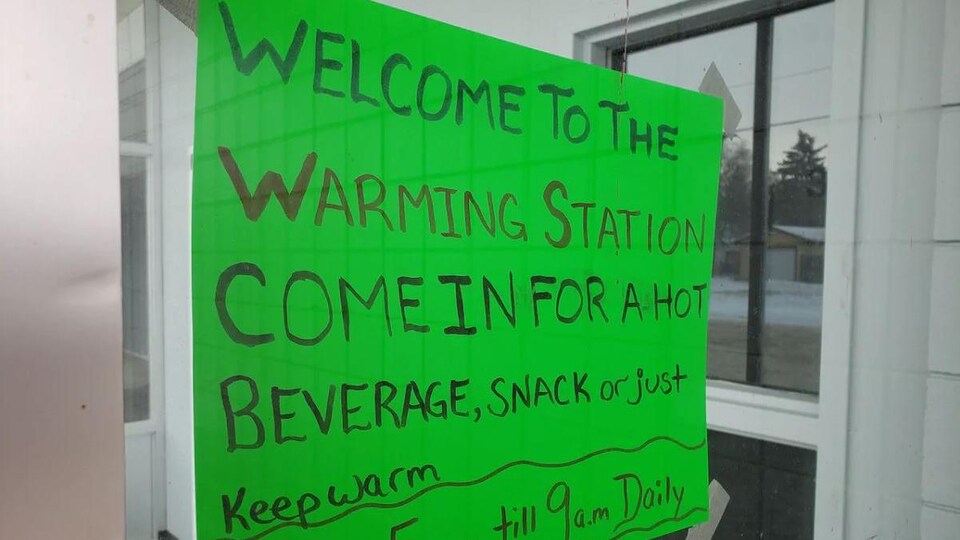 WELCOME TO THE
WARMING STATION
COME IN FOR A HOT
BEVERAGE, SNACK or just
Keep warm
till 9a.m Daily